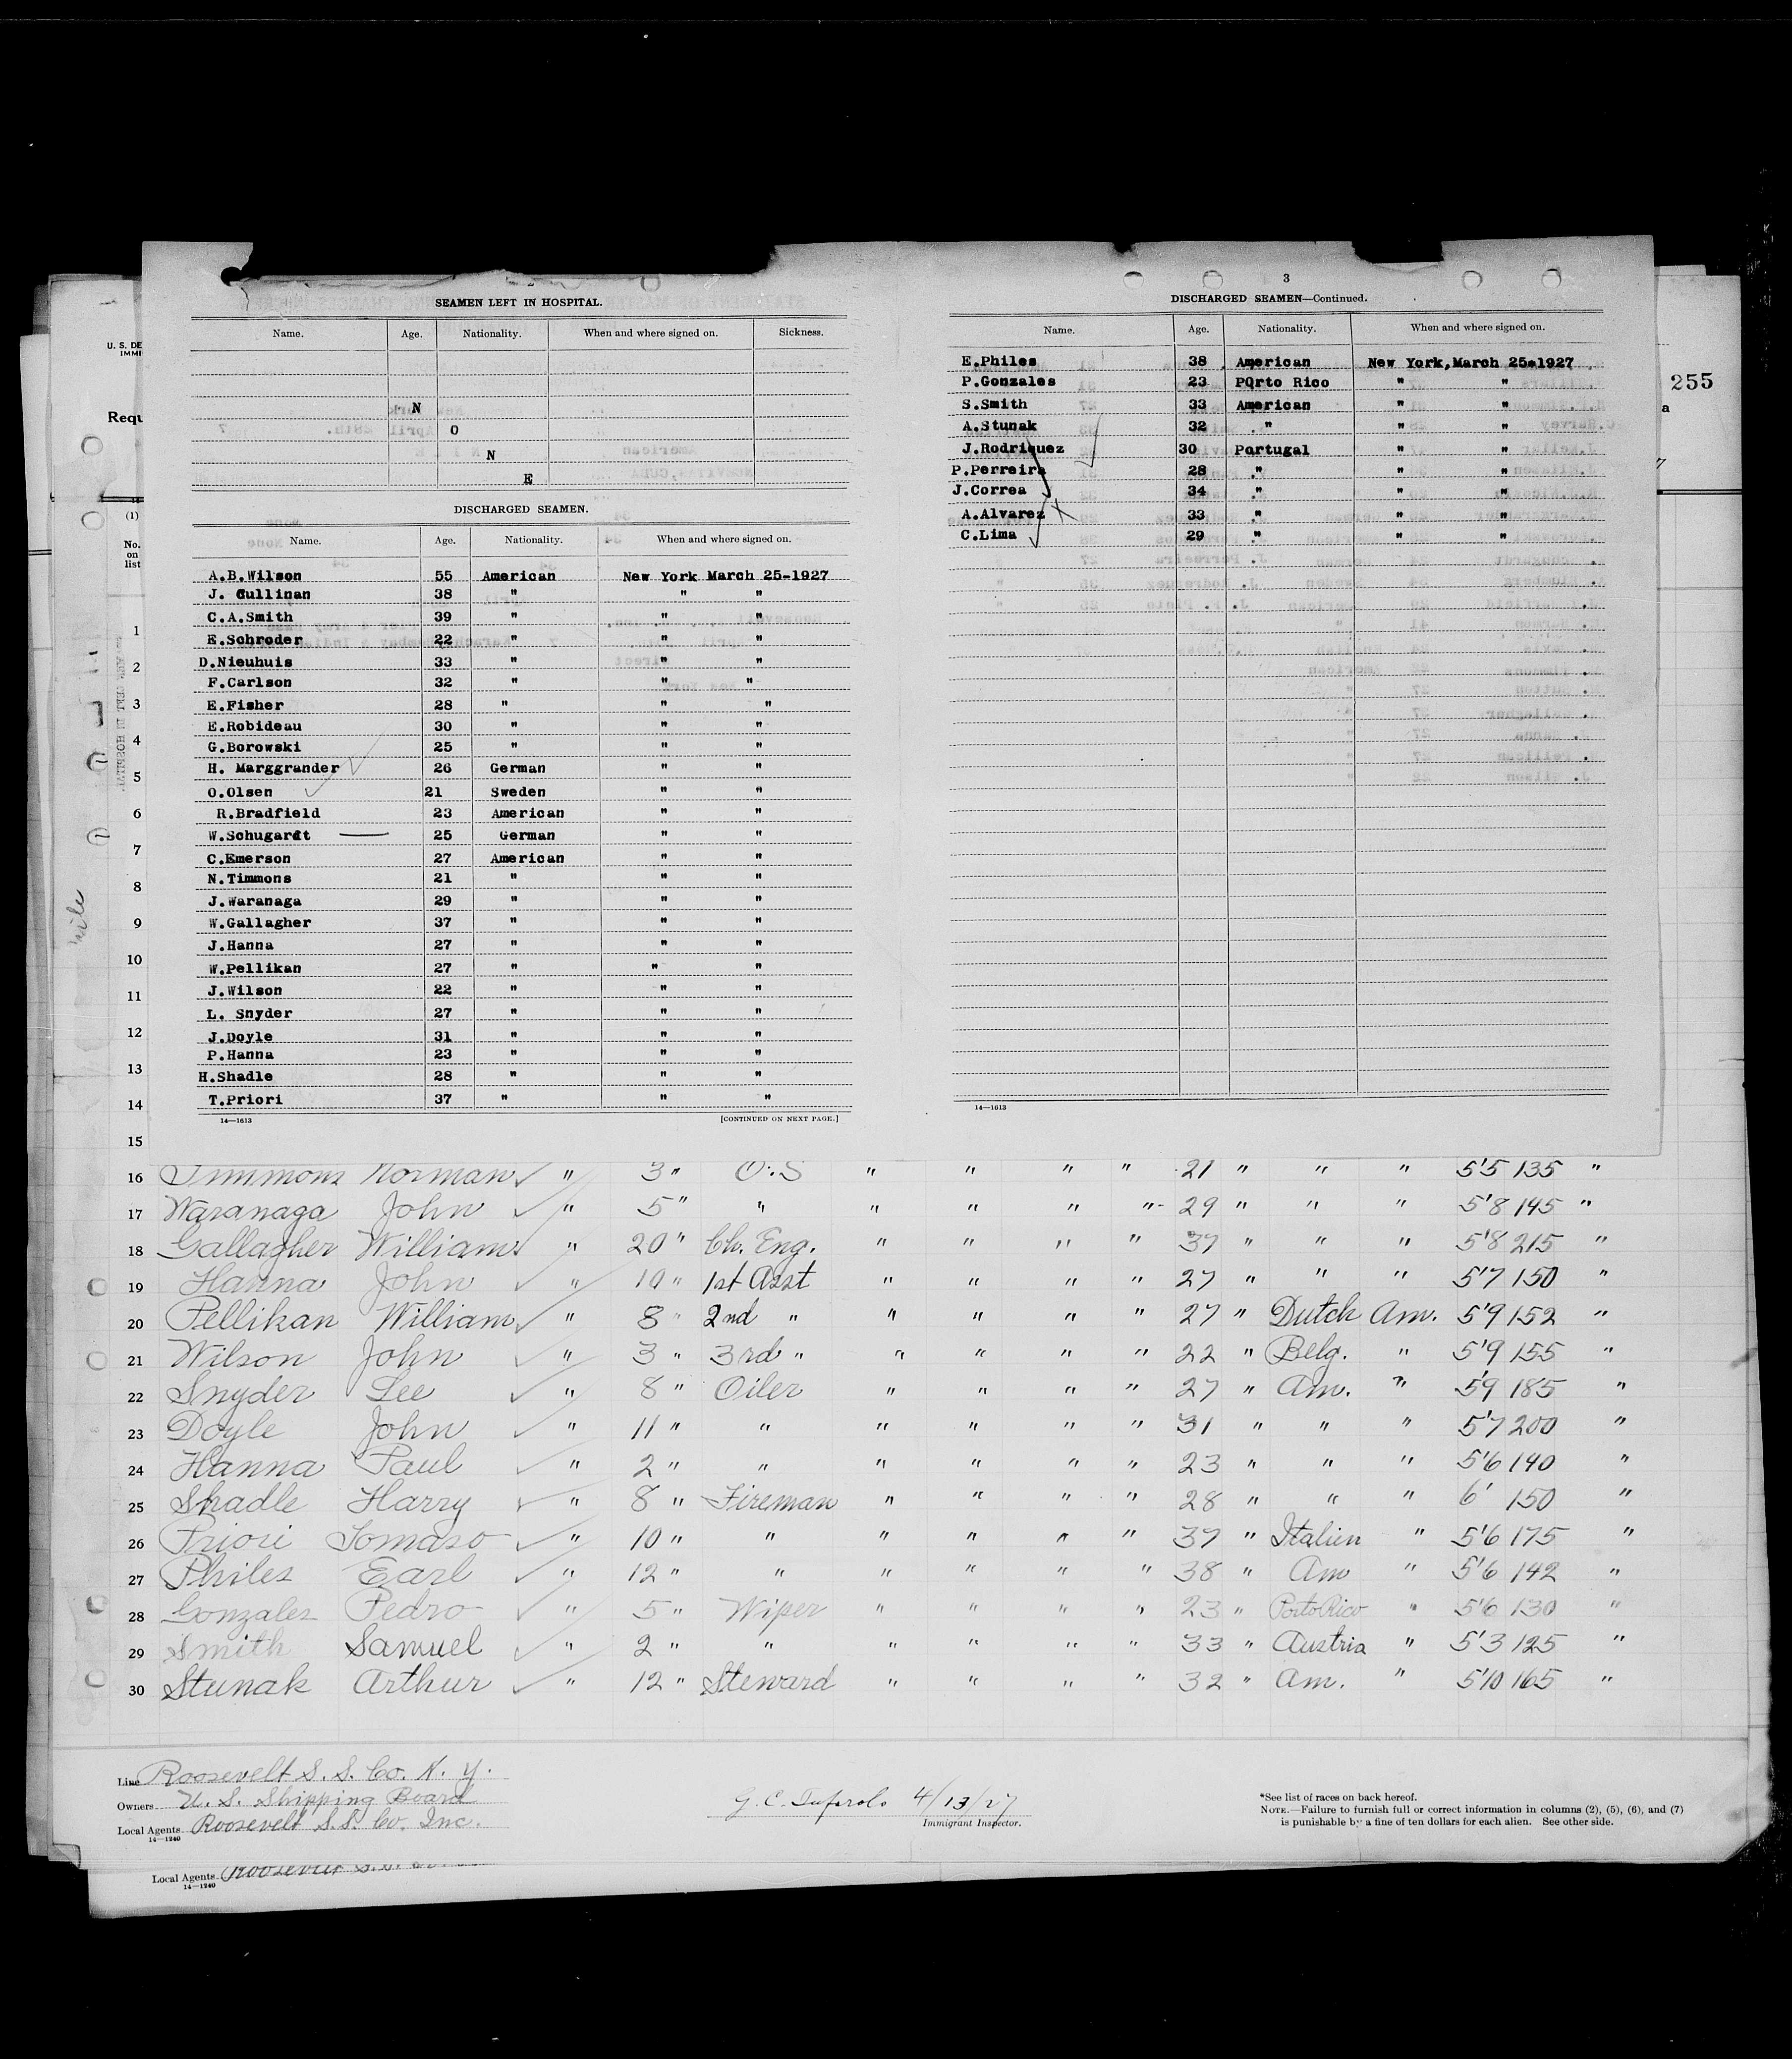 3
SEAMEN LEFT IN HOSPITAL.
Name. Age. Nationality. When and where signed on. Sickness.
N
O
N
E
DISCHARGED SEAMEN.
Name. Age. Nationality. When and where signed on.
A.B.Wilson 55 American New York March 25-1927
J. Cullinan 38 " " "
C.A.Smith 39 " " "
E.Schroder 22 " " "
D.Nieuhuis 33 " " "
F.Carlson 32 " " "
E.Fisher 28 " " "
E.Robideau 30 " " "
G.Borowski 25 " " "
H. Marggrander 26 German " "
O.Olsen 21 Sweden " "
R.Bradfield 23 American " "
W.Schugardt 25 German " "
C.Emerson 27 American " "
N.Timmons 21 " " "
J.Waranaga 29 " " "
W.Gallagher 37 " " "
J.Hanna 27 " " "
W.Pellikan 27 " " "
J.Wilson 22 " " "
L. Snyder 27 " " "
J.Doyle 31 " " "
P.Hanna 23 " " "
H.Shadle 28 " " "
T.Priori 37 " " "
14—1613 [CONTINUED ON NEXT PAGE.]
DISCHARGED SEAMEN—Continued.
Name. Age. Nationality. When and where signed on.
E.Philes 38 American New York,March 25-1927
P.Gonzales 23 POrto Rico " "
S.Smith 33 American " "
A.Stunak 32 " " "
J.Rodriquez 30 Portugal " "
P.Perreira 28 " " "
J.Correa 34 " " "
A.Alvarez 33 " " "
C.Lima 29 " " "
14—1613
U. S. DE
IMMI
Requ
255
a
(1)
No.
on
list
1
2
3
4
5
6
7
8
9
10
11
12
13
14
15
16 Timmons Norman " 3 " O.S " " " " 21 " " " 5'5 135 "
17 Waranaga John " 5 " " " " " " 29 " " " 5'8 145 "
18 Gallagher William " 20 " Ch. Eng. " " " " 37 " " " 5'8 215 "
19 Hanna John " 10 " 1st Asst " " " " 27 " " " 5'7 150 "
20 Pellikan William " 8 " 2nd " " " " " 27 " Dutch Am. 5'9 152 "
21 Wilson John " 3 " 3rd " " " " " 22 " Belg. " 5'9 155 "
22 Snyder Lee " 8 " Oiler " " " " 27 " Am. " 5'9 185 "
23 Doyle John " 11 " " " " " " 31 " " " 5'7 200 "
24 Hanna Paul " 2 " " " " " " 23 " " " 5'6 140 "
25 Shadle Harry " 8 " Fireman " " " " 28 " " " 6' 150 "
26 Priori Tomaso " 10 " " " " " " 37 " Italien " 5'6 175 "
27 Philes Earl " 12 " " " " " " 38 " Am " 5'6 142 "
28 Gonzales Pedro " 5 " Wiper " " " " 23 " Porto Rico " 5'6 130 "
29 Smith Samuel " 2 " " " " " " 33 " Austria " 5'3 125 "
30 Stunak Arthur " 12 " Steward " " " " 32 " Am. " 5'10 165 "
Line Roosevelt S. S. Co. N. Y.
Owners U. S. Shipping Board
Local Agents Roosevelt S.S. Co. Inc.
14—1240
4/13/27
Immigrant Inspector.
*See list of races on back hereof.
NOTE.—Failure to furnish full or correct information in columns (2), (5), (6), and (7)
is punishable by a fine of ten dollars for each alien. See other side.
Local Agents
14—1240